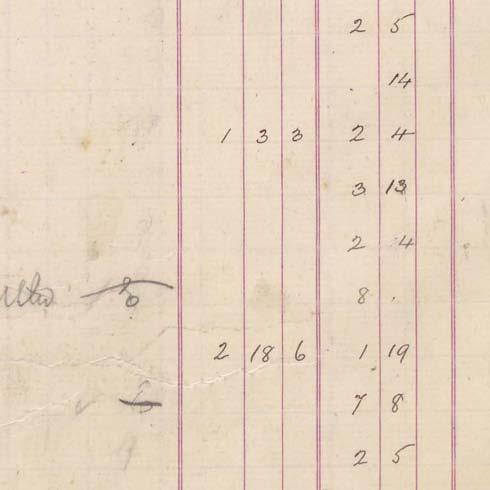 2 5
. 14
1 3 3 2 4
3 13
2 4
8 .
2 18 6 1 19
7 8
2 5